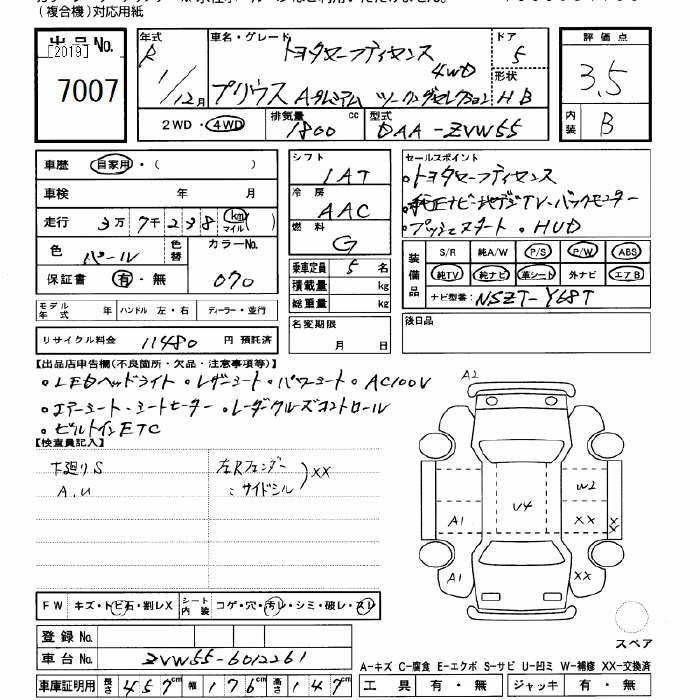 (複合機)対応用紙
出品No.
[2019]
7007
年式
R 1/12月
車名・グレード
トヨタセーフティセンス
4WD
プリウス Aプレミアム ツーリングセレクション
ドア
5
形状
HB
2WD・4WD
排気量
1800 cc
型式
DAA-ZVW55
評価点
3.5
内装
B
車歴 自家用・( )
車検 年 月
走行 3万7千238 km マイル ( )
色 パール 色替
カラーNo. 070
保証書 有・無
モデル年式 年 ハンドル 左・右 ディーラー・並行
リサイクル料金 11480 円 預託済
シフト
1AT
冷房
AAC
燃料
G
乗車定員 5 名
積載量 kg
総重量 kg
名変期限
月 日
セールスポイント
・トヨタセーフティセンス
・純正ナビ・地デジTV・バックモニター
・プッシュスタート ・HUD
装備品
S/R 純A/W P/S P/W ABS
純TV 純ナビ 革シート 外ナビ エアB
ナビ型番: NSZT-Y68T
後日品
【出品店申告欄(不良箇所・欠品・注意事項等)】
・LEDヘッドライト ・レザーシート・パワーシート・AC100V
・エアーシート・シートヒーター・レーダークルーズコントロール
・ビルトインETC
【検査員記入】
下廻りS
A.U
左Rフェンダー
〃 サイドシル
XX
A2
W2
U4
A1
XX
XX
A1
XX
スペア
FW キズ・トビ石・割レX
シート内装 コゲ・穴・汚レ・シミ・破レ・スレ
登録No.
車台No. ZVW55-6012261
車庫証明用 長さ 457cm 幅 176cm 高さ 147cm
A-キズ C-腐食 E-エクボ S-サビ U-凹ミ W-補修 XX-交換済
工具 有・無 ジャッキ 有・無